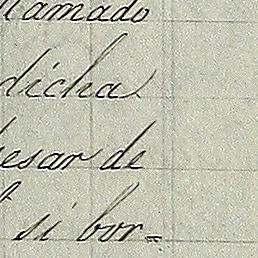 llamado
dicha
pesar de
si bor=